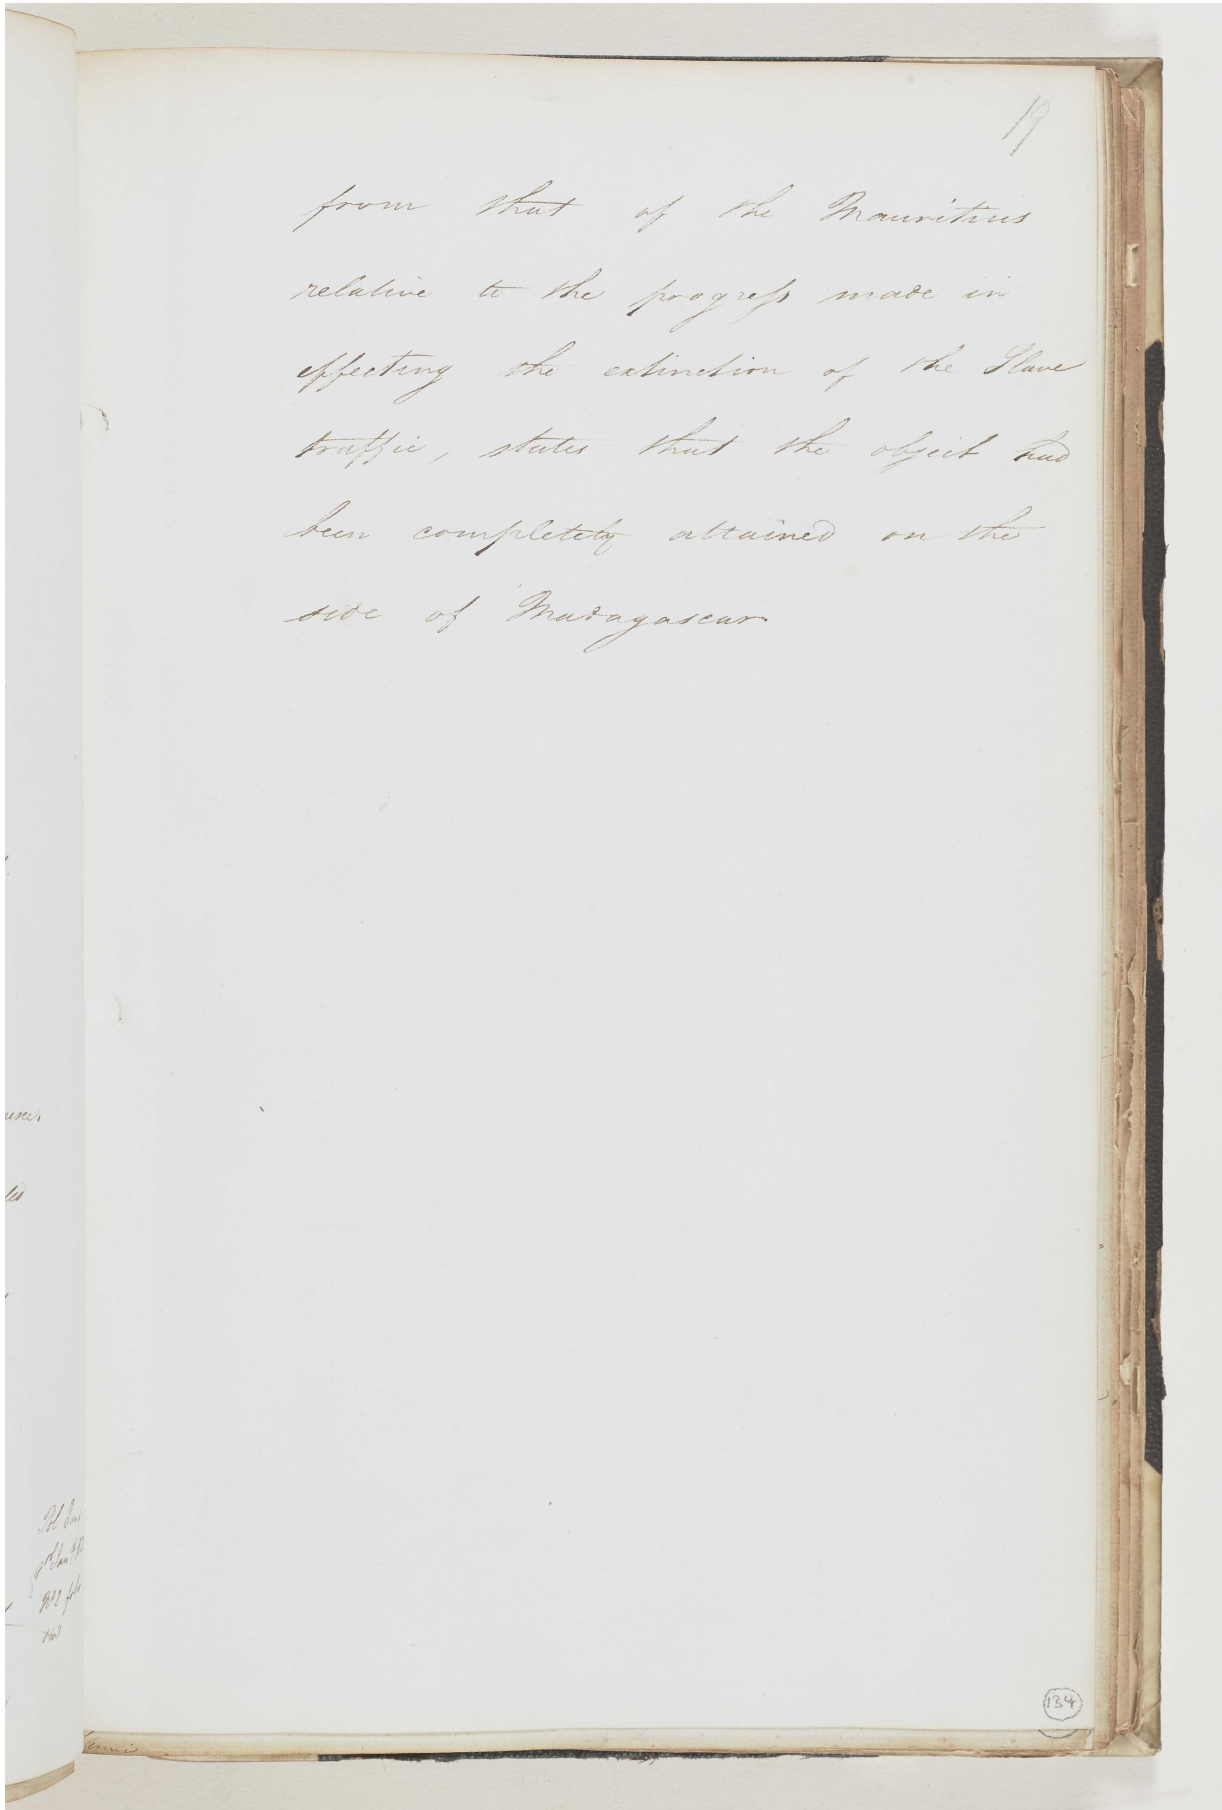 19
from that of the Mauritius
relative to the progress made in
effecting the extinction of the Slave
traffic, states that the object had
been completely attained on the
side of Madagascar
134